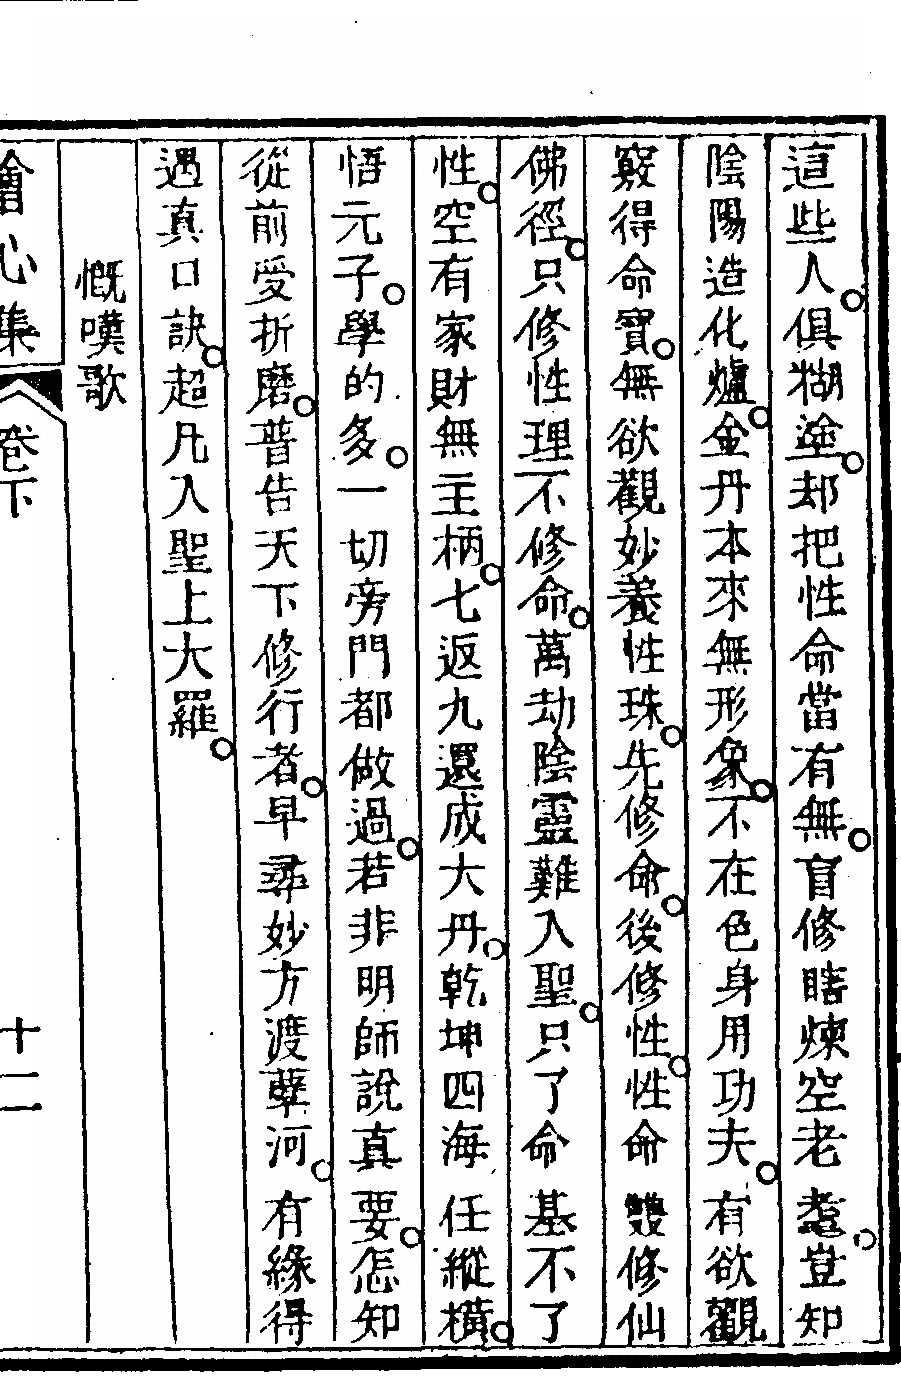 這些人○俱糊塗○却把性命當有無○盲修瞎煉空老耋○豈知
陰陽造化爐○金丹本來無形象○不在色身用功夫○有欲觀
竅得命寶○無欲觀妙養性珠○先修命○後修性○性命雙修仙
佛徑○只修性理不修命○萬劫陰靈難入聖○只了命基不了
性○空有家財無主柄○七返九還成大丹○乾坤四海任縱橫○
悟元子○學的多○一切旁門都做過○若非明師說真要○怎知
從前受折磨○普告天下修行者○早尋妙方渡孽河○有緣得
遇真口訣○超凡入聖上大羅○
慨嘆歌
會心集 卷下 十二